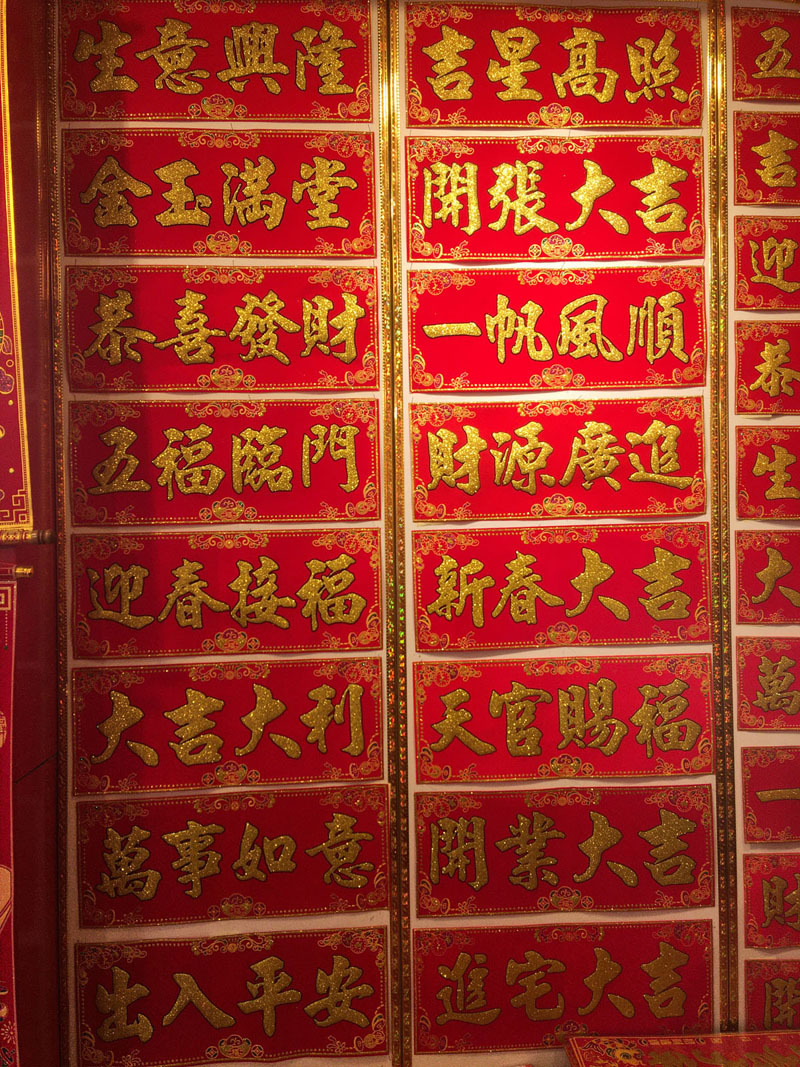 生意興隆
金玉滿堂
恭喜發財
五福臨門
迎春接福
大吉大利
萬事如意
出入平安
吉星高照
開張大吉
一帆風順
財源廣進
新春大吉
天官賜福
開業大吉
進宅大吉
五
吉
迎
恭
生
大
萬
一
財
開